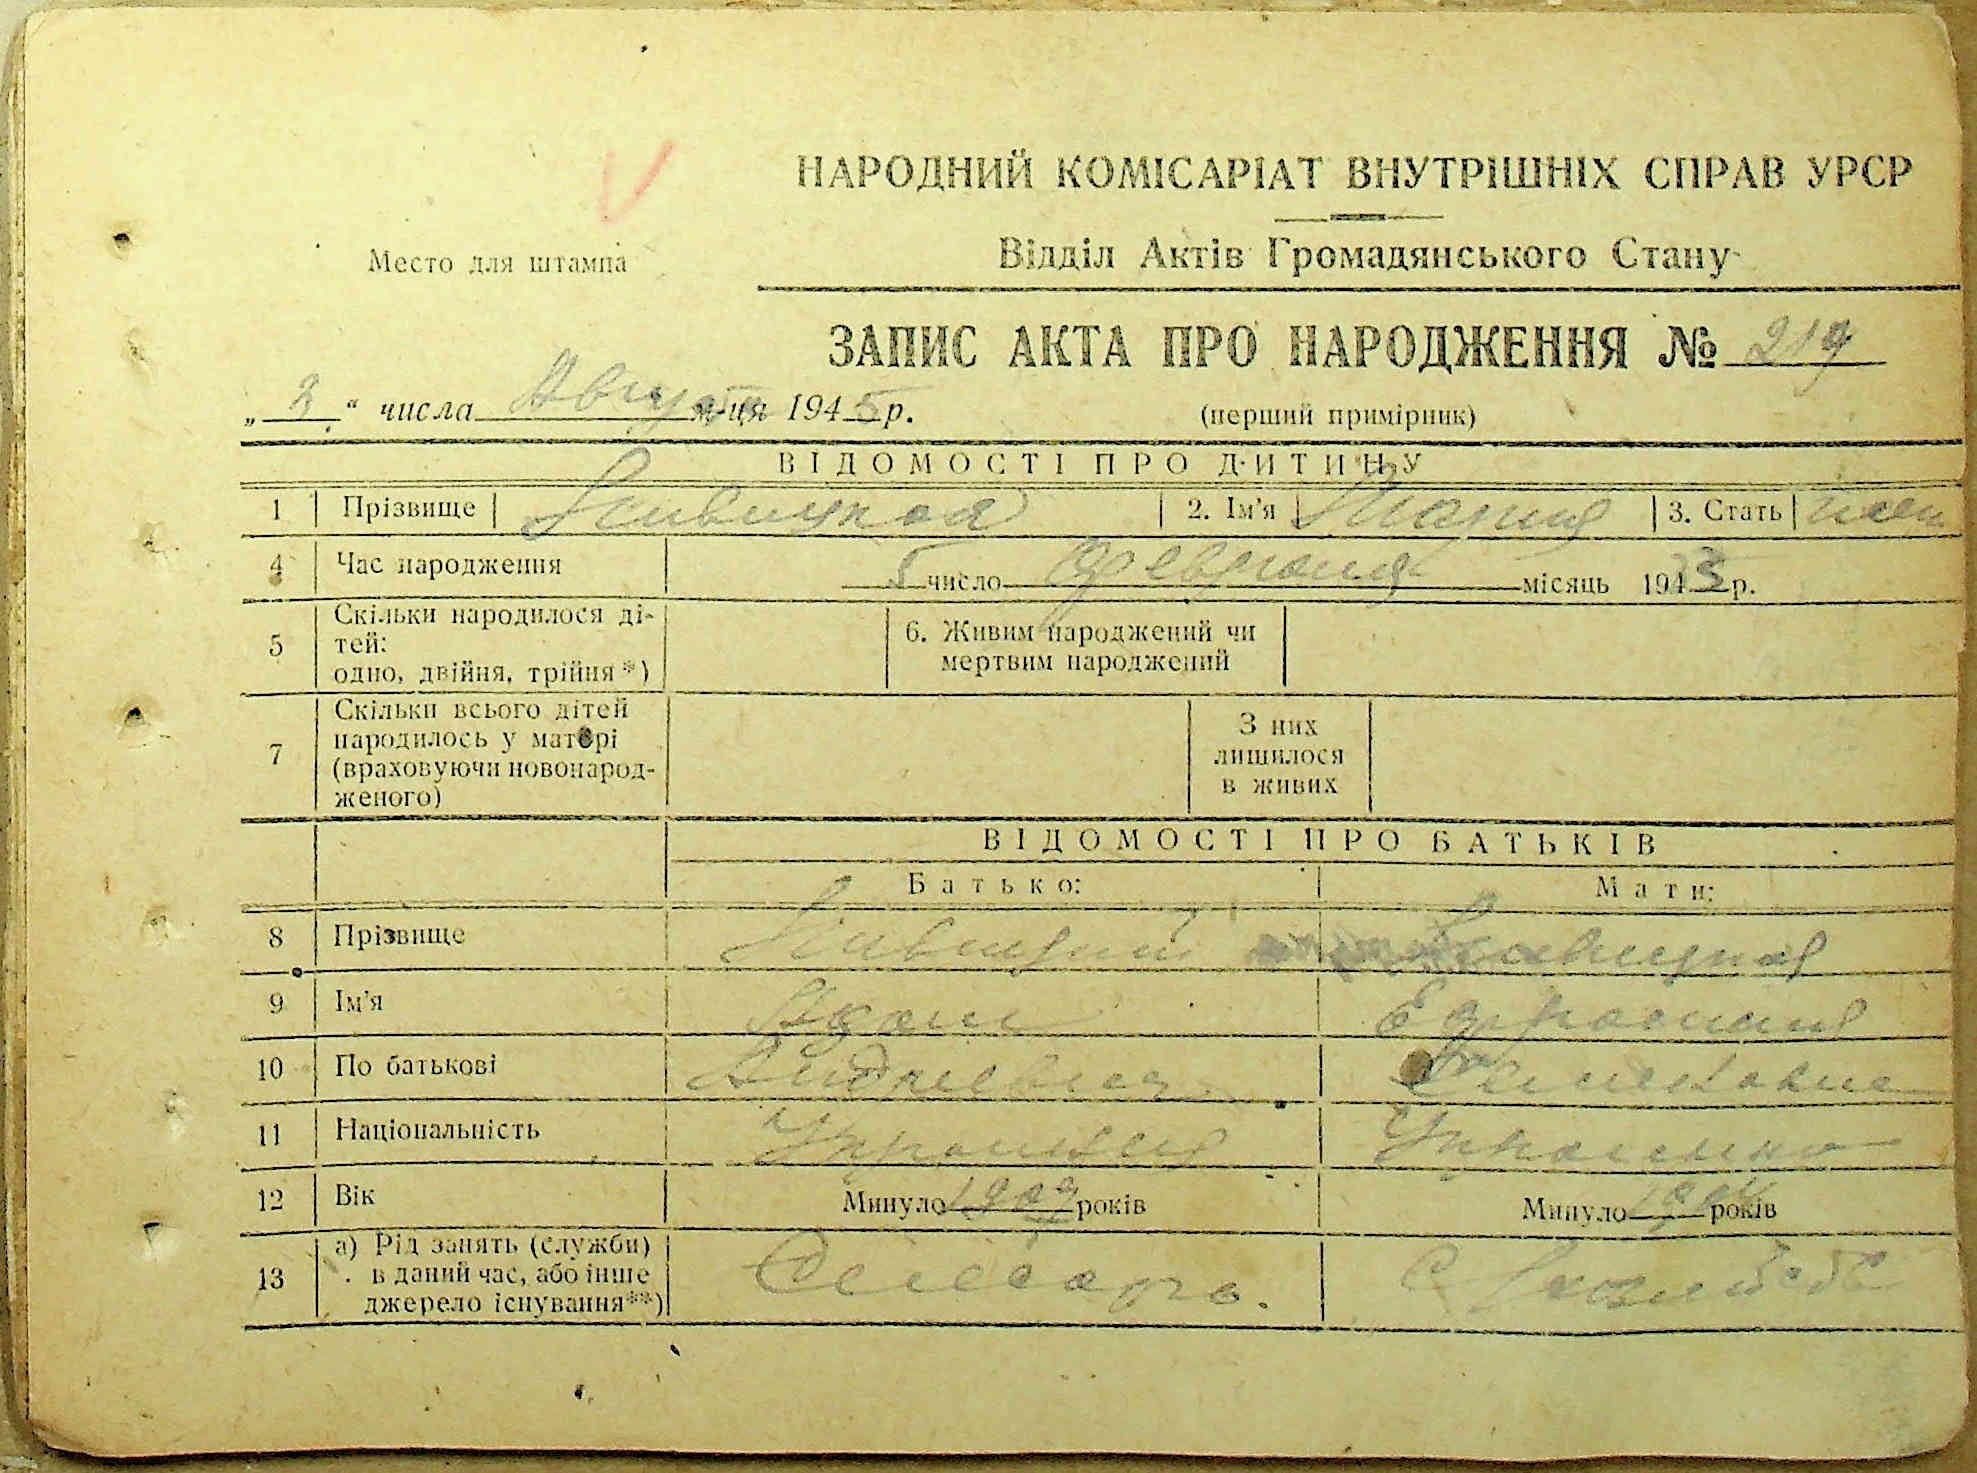 НАРОДНИЙ КОМІСАРІАТ ВНУТРІШНІХ СПРАВ УРСР
Место для штампа
Відділ Актів Громадянського Стану
ЗАПИС АКТА ПРО НАРОДЖЕННЯ № 219
„ 3 “ числа Август м-ця 1945 р.
(перший примірник)
ВІДОМОСТІ ПРО ДИТИНУ
1 Прізвище 2. Ім'я Мария 3. Стать жен
4 Час народження 5 число февраля місяць 1943 р.
5 Скільки народилося ді-
тей:
одно, двійня, трійня *)
6. Живим народжений чи
мертвим народжений
7 Скільки всього дітей
народилось у матері
(враховуючи новонарод-
женого)
З них
лишилося
в живих
ВІДОМОСТІ ПРО БАТЬКІВ
Батько: Мати:
8 Прізвище
9 Ім'я
10 По батькові Андреевич
11 Національність
12 Вік Минуло 1909 років Минуло років
13 а) Рід занять (служби)
в даний час, або інше
джерело існування**)
Слесарь.